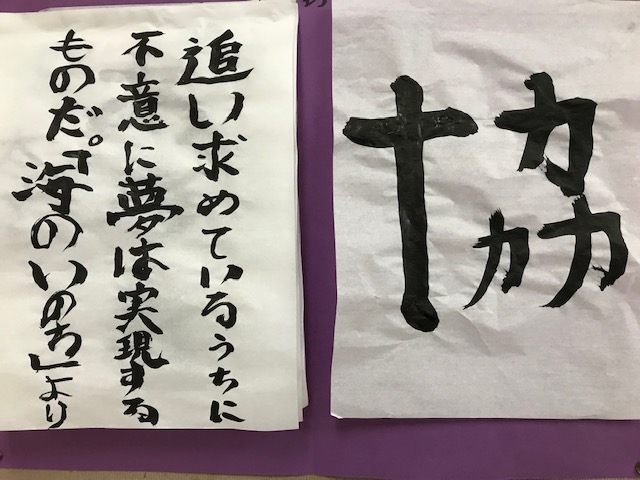 追い求めているうちに
不意に夢は実現する
ものだ。「海のいのち」より
協